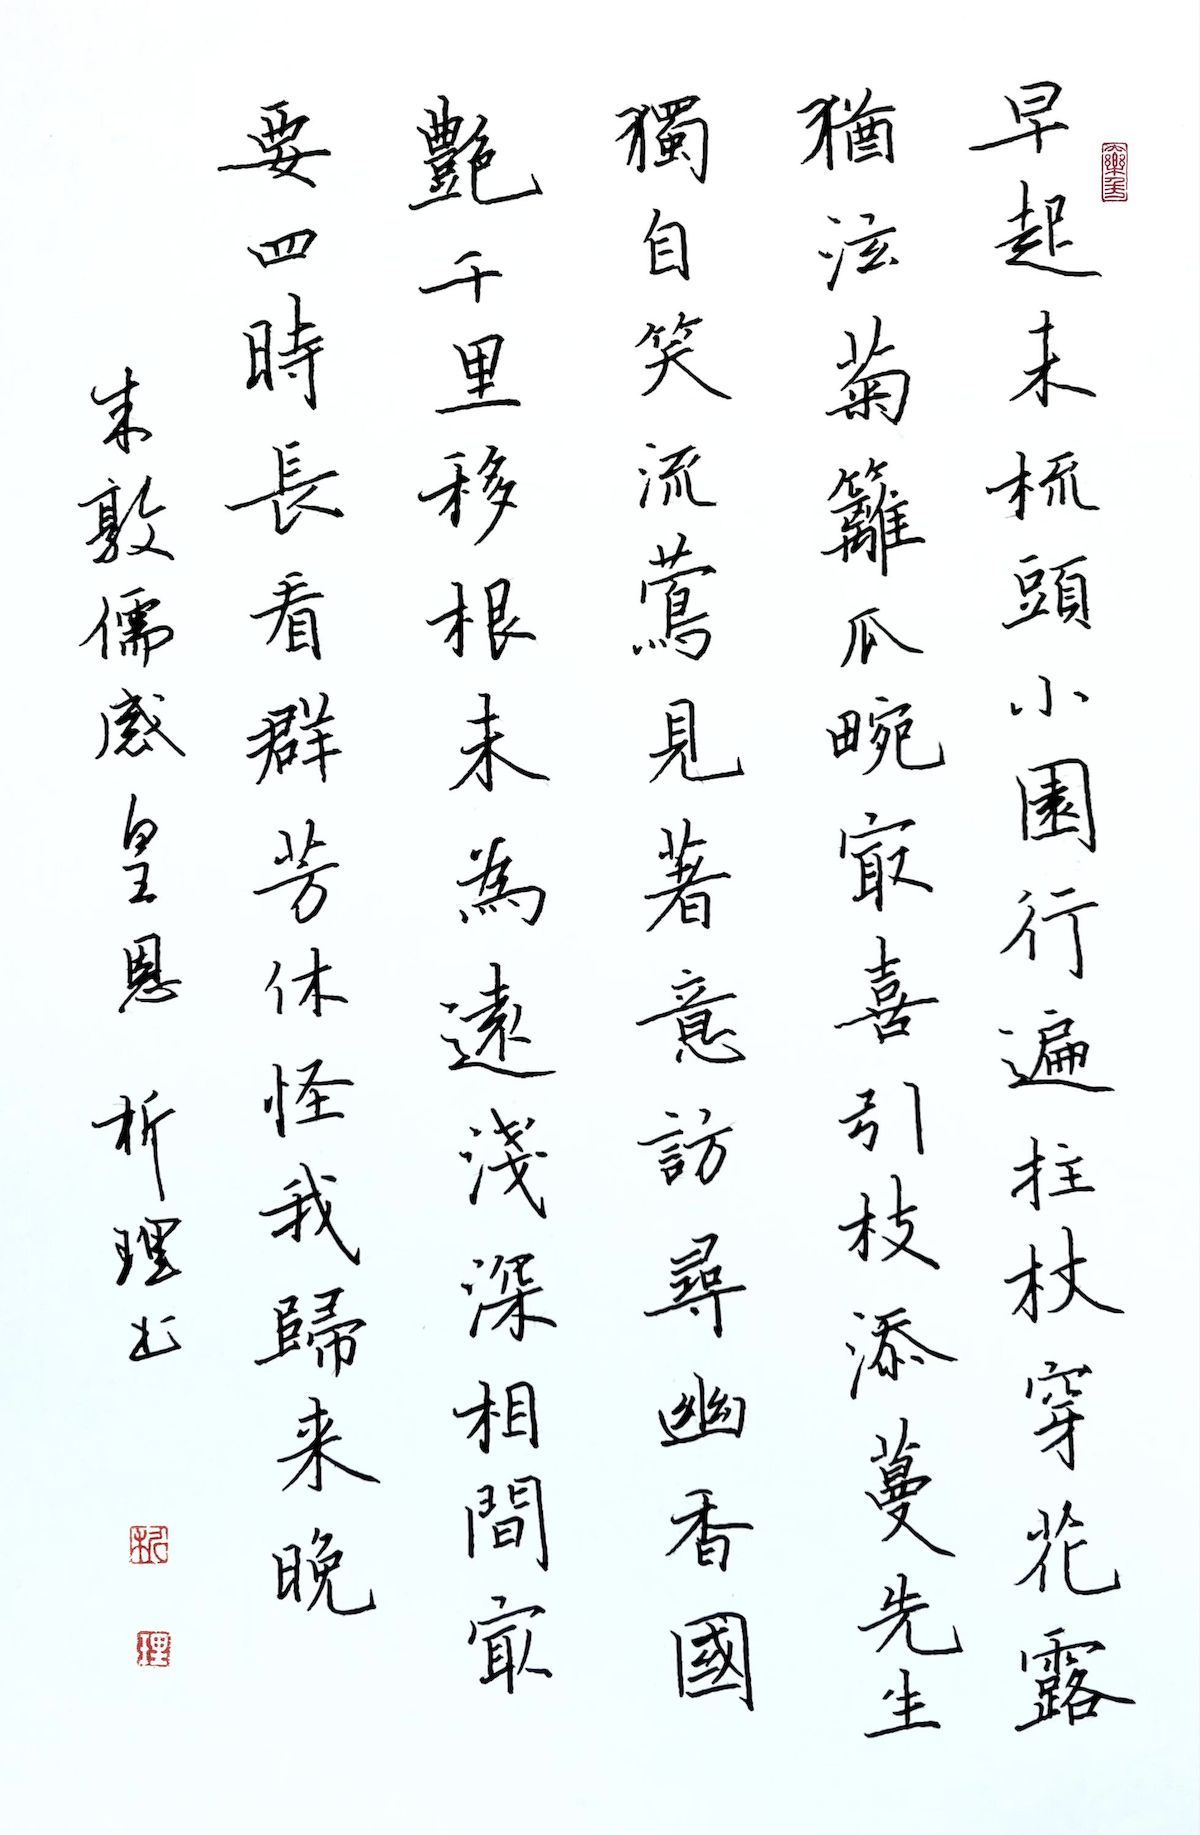 早起未梳頭小園行遍拄杖穿花露
猶泫菊籬瓜畹㝡喜引枝添蔓先生
獨自笑流鶯見著意訪尋幽香國
艷千里移根未為遠淺深相間㝡
要四時長看群芳休怪我歸来晚
朱敦儒感皇恩 析理书
析
理